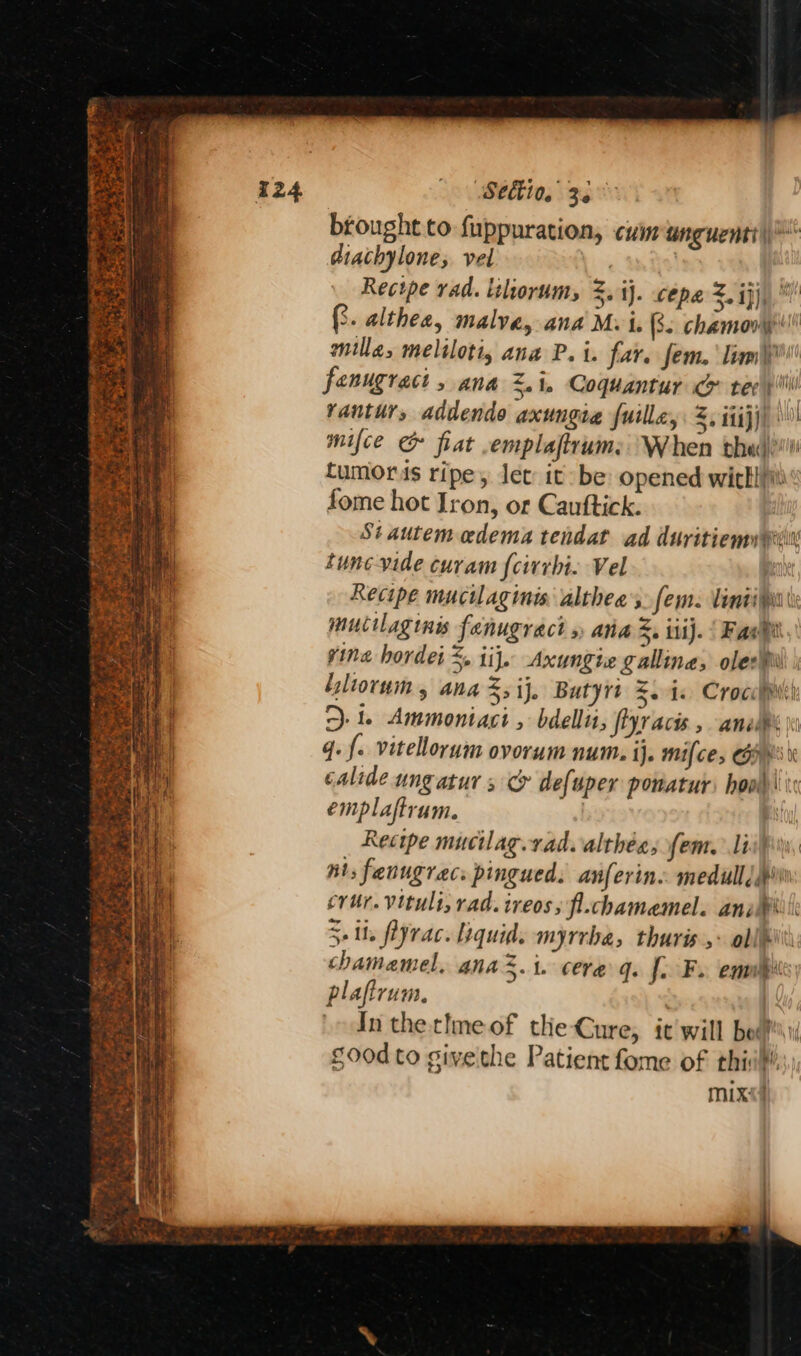 124 Sectio. 3.
brought to ſuppuration, cum unguenti
diachylone, vel
Recipe rad. liliorum, ℥. ij. cepæ ℥. iij
ß. altheæ, malvæ, ana M. i. ß. chamo
millæ, meliloti, ana P. i. far. ſem. lini
fænugræci, ana ℥. i. Coquantur & te
rantur, addendo axungiæ ſuillæ, ℥. iiij
miſce & fiat emplaſtrum. When the
tumor is ripe, let it be opened with
ſome hot Iron, or Cauſtick.
Si autem œdema tendat ad duritiem
tunc vide curam ſcirrhi. Vel
Recipe mucilaginis altheæ, ſem. lini
mucilaginis fænugræci, ana ℥. iiij. Fa
rinæ hordei ℥. iij. Axungiæ gallinæ, ole
liliorum, ana ℥. ij. Butyri ℥. i. Croci
℈. i. Ammoniaci, bdellii, ſtyracis, ana
q. ſ. vitellorum ovorum num. ij. miſce, &
calide ungatur; & deſuper ponatur ho
emplaſtrum.
Recipe mucilag. rad. altheæ, ſem. li
ni, fænugræc. pingued. anſerin. medull.
crur. vituli, rad. ireos, fl. chamæmel. an
℥. ii. ſtyrac. liquid. myrrhæ, thuris, ol
chamæmel. ana ℥. i. ceræ q. ſ. F. em
plaſtrum.
In the time of the Cure, it will be
good to give the Patient ſome of this
mix